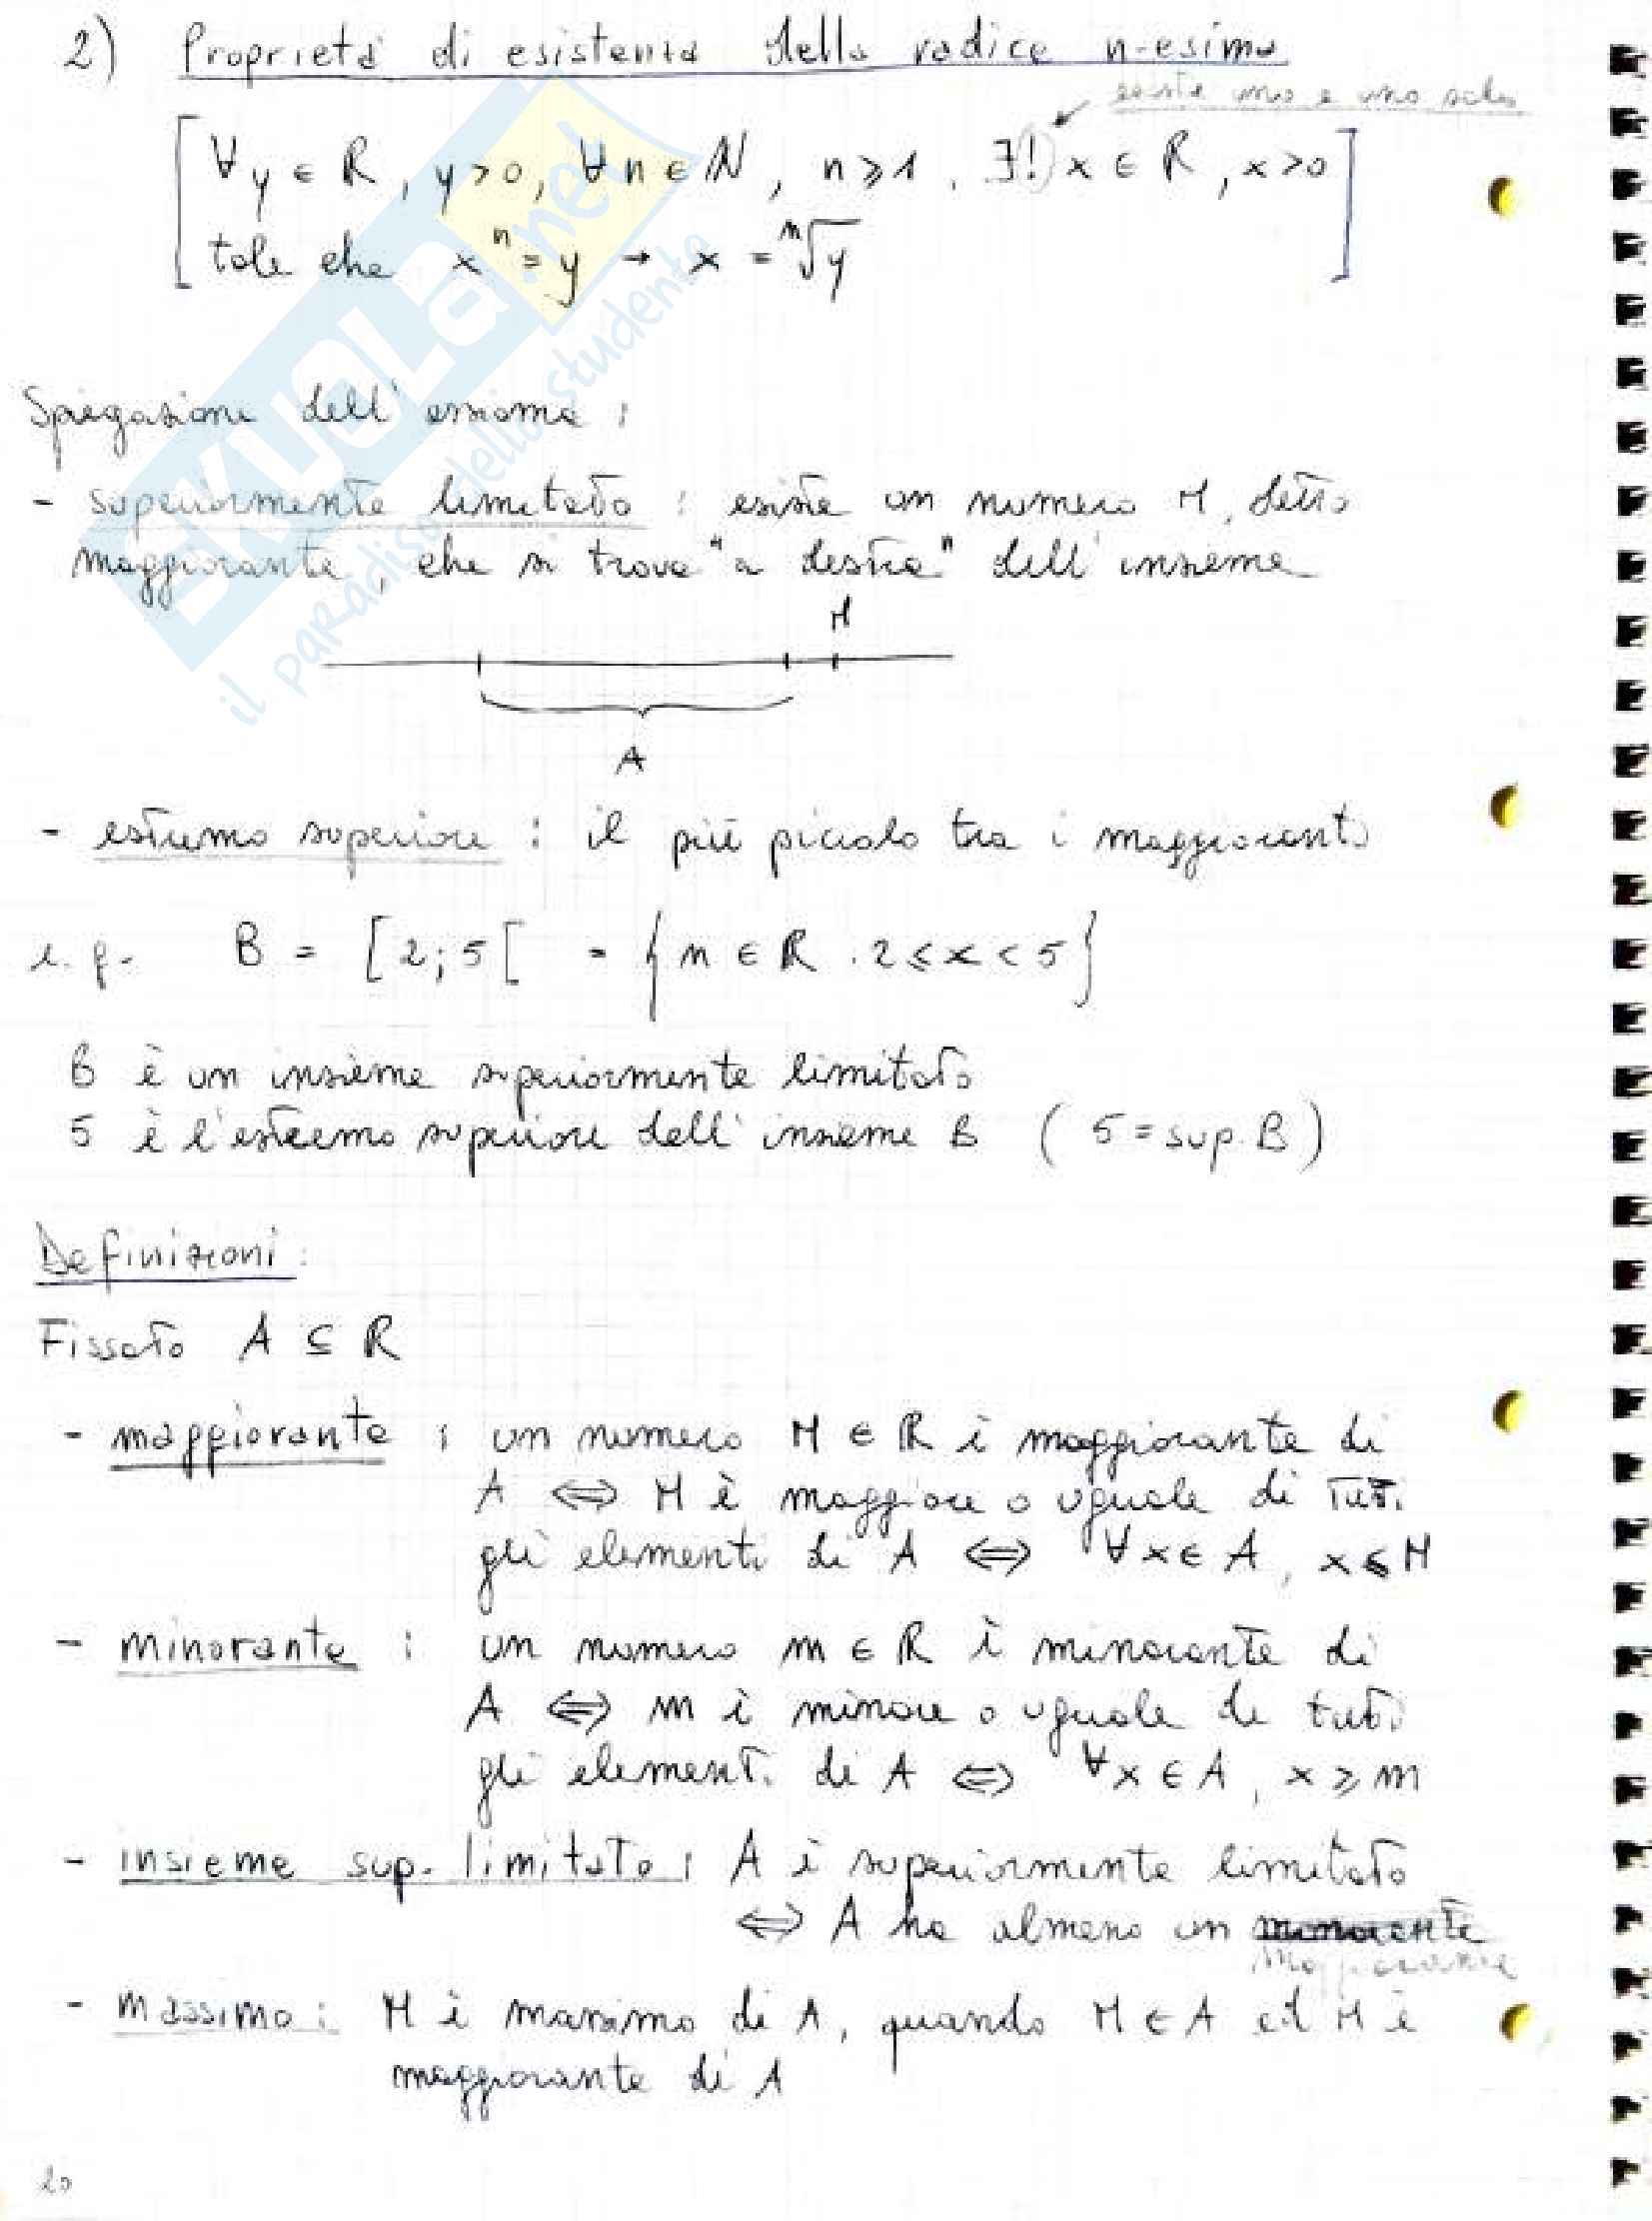 2) Proprietà di esistenza della radice n-esima
esiste uno e uno solo
∀y ∈ R, y>0, ∀n∈N, n⩾1, ∃! x ∈ R, x>0
tale che xⁿ = y → x = ⁿ√y
Spiegazione dell'assioma:
- superiormente limitato: esiste un numero M, detto
maggiorante, che si trova "a destra" dell'insieme
M
A
- estremo superiore: il più piccolo tra i maggioranti
e.g. B = [2;5[ = {n ∈ R : 2⩽x<5}
B è un insieme superiormente limitato
5 è l'estremo superiore dell'insieme B (5 = sup. B)
Definizioni:
Fissato A ⊆ R
- maggiorante: un numero M ∈ R è maggiorante di
A ⟺ M è maggiore o uguale di tutti
gli elementi di A ⟺ ∀x∈A, x⩽M
- minorante: un numero m ∈ R è minorante di
A ⟺ m è minore o uguale di tutti
gli elementi di A ⟺ ∀x∈A, x⩾m
- insieme sup. limitato: A è superiormente limitato
⟺ A ha almeno un minorante
maggiorante
- massimo: M è massimo di A, quando M∈A ed M è
maggiorante di A
20
SKUOLA.net
il paradiso dello studente